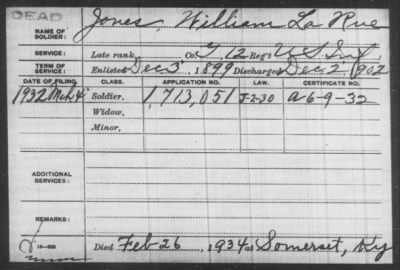 DEAD
NAME OF SOLDIER: Jones, William La Rue
SERVICE: Late rank, Co. G, 12 Reg't U S Inf.
TERM OF SERVICE: Enlisted Dec 3, 1899 Discharged Dec 2, 1902
DATE OF FILING. CLASS. APPLICATION NO. LAW. CERTIFICATE NO.
1932 Mch 4 Soldier, 1,713,051 J-2-30 a 6-9-32
Widow,
Minor,
ADDITIONAL SERVICES:
REMARKS:
Died Feb 26, 1934 at Somerset, Ky